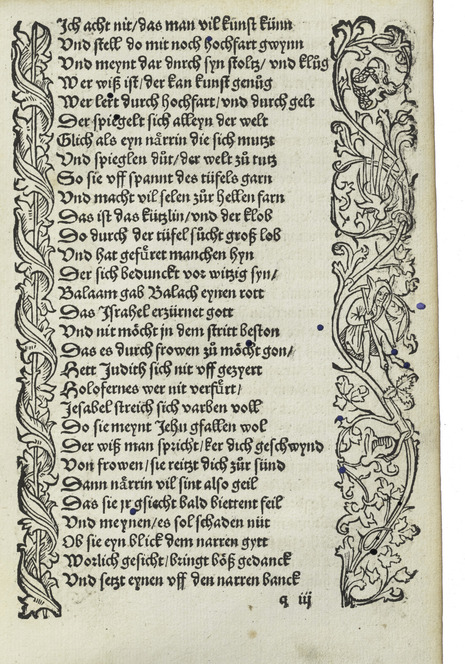 Ich acht nit/das man vil kunst künn
Vnd stell do mit noch hochfart gwynn
Vnd meynt dar durch syn stoltz/ vnd klůg
Wer wiß ist/der kan kunst genůg
Wer lert durch hochfart/vnd durch gelt
Der spiegelt sich alleyn der welt
Glich als eyn nårrin die sich mutzt
Vnd spieglen důt/der welt zů tutz
So sie vff spannt des tüfels garn
Vnd macht vil selen zůr hellen farn
Das ist das kützlin/vnd der klob
Do durch der tüfel sůcht groß lob
Vnd hat gefůret manchen hyn
Der sich bedunckt vor witzig syn/
Balaam gab Balach eynen rott
Das Israhel erzürnet gott
Vnd nit möcht in dem stritt beston
Das es durch frowen zů möcht gon/
Hett Judith sich nit vff gezyert
Holofernes wer nit verfůrt/
Jesabel streich sich varben voll
Do sie meynt Jehu gfallen wol
Der wiß man spricht/ker dich geschwynd
Von frowen/sie reitzt dich zůr sünd
Dann nårrin vil sint also geil
Das sie ir gsiecht bald biettent feil
Vnd meynen/es sol schaden nüt
Ob sie eyn blick dem narren gytt
Worlich gesicht/bringt böß gedanck
Vnd setzt eynen vff den narren banck
q iij